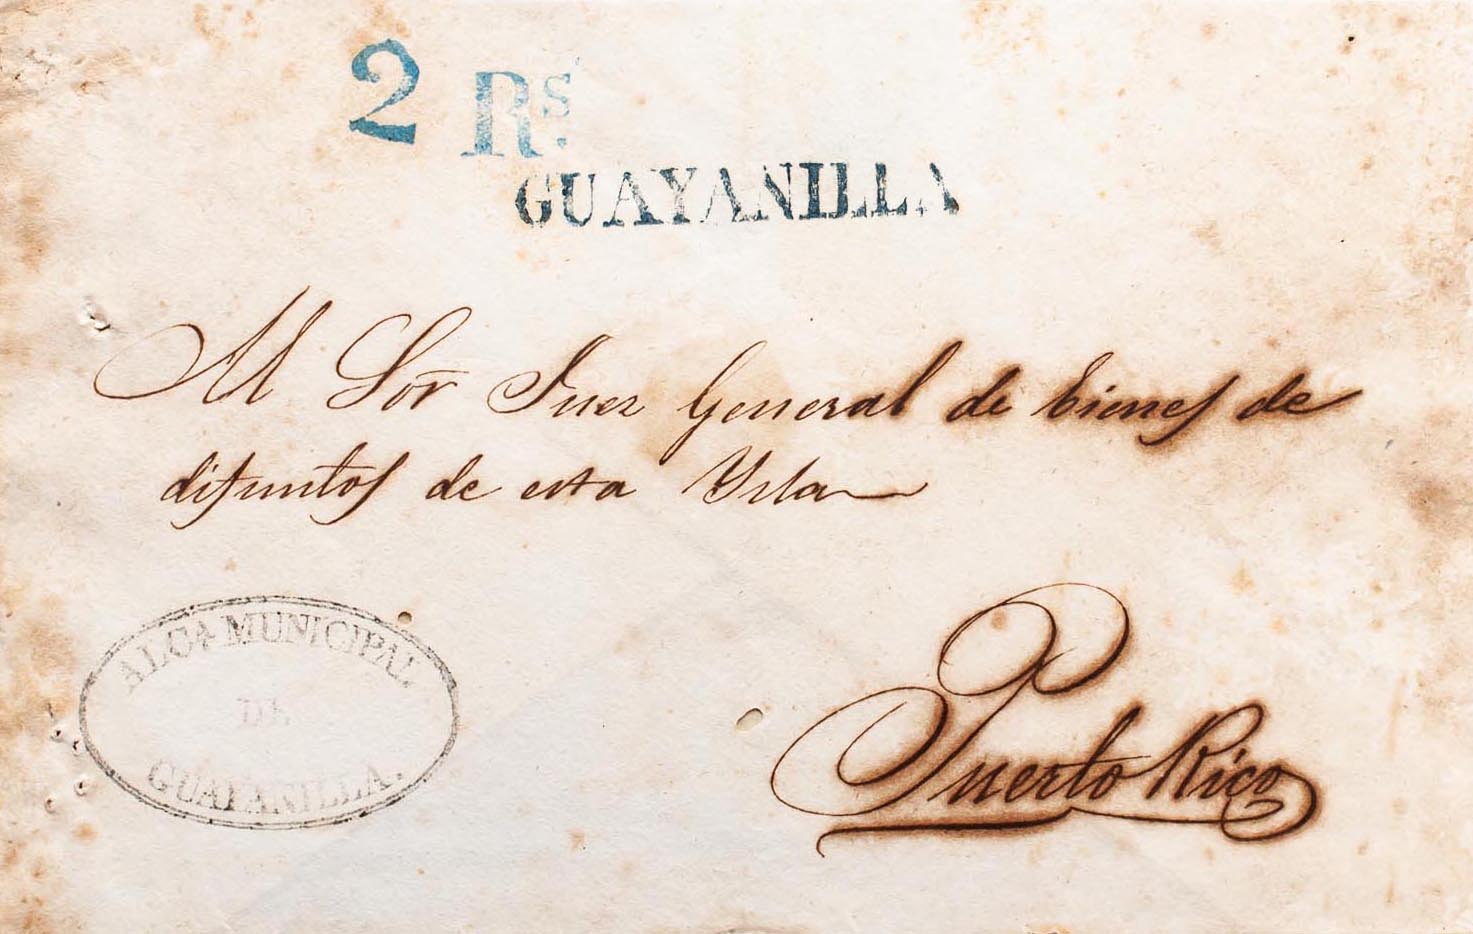 2 Rs.
GUAYANILLA
Al Sor Juez General de bienes de
difuntos de esta Ysla
ALCa. MUNICIPAL
DE
GUAYANILLA.
Puerto Rico